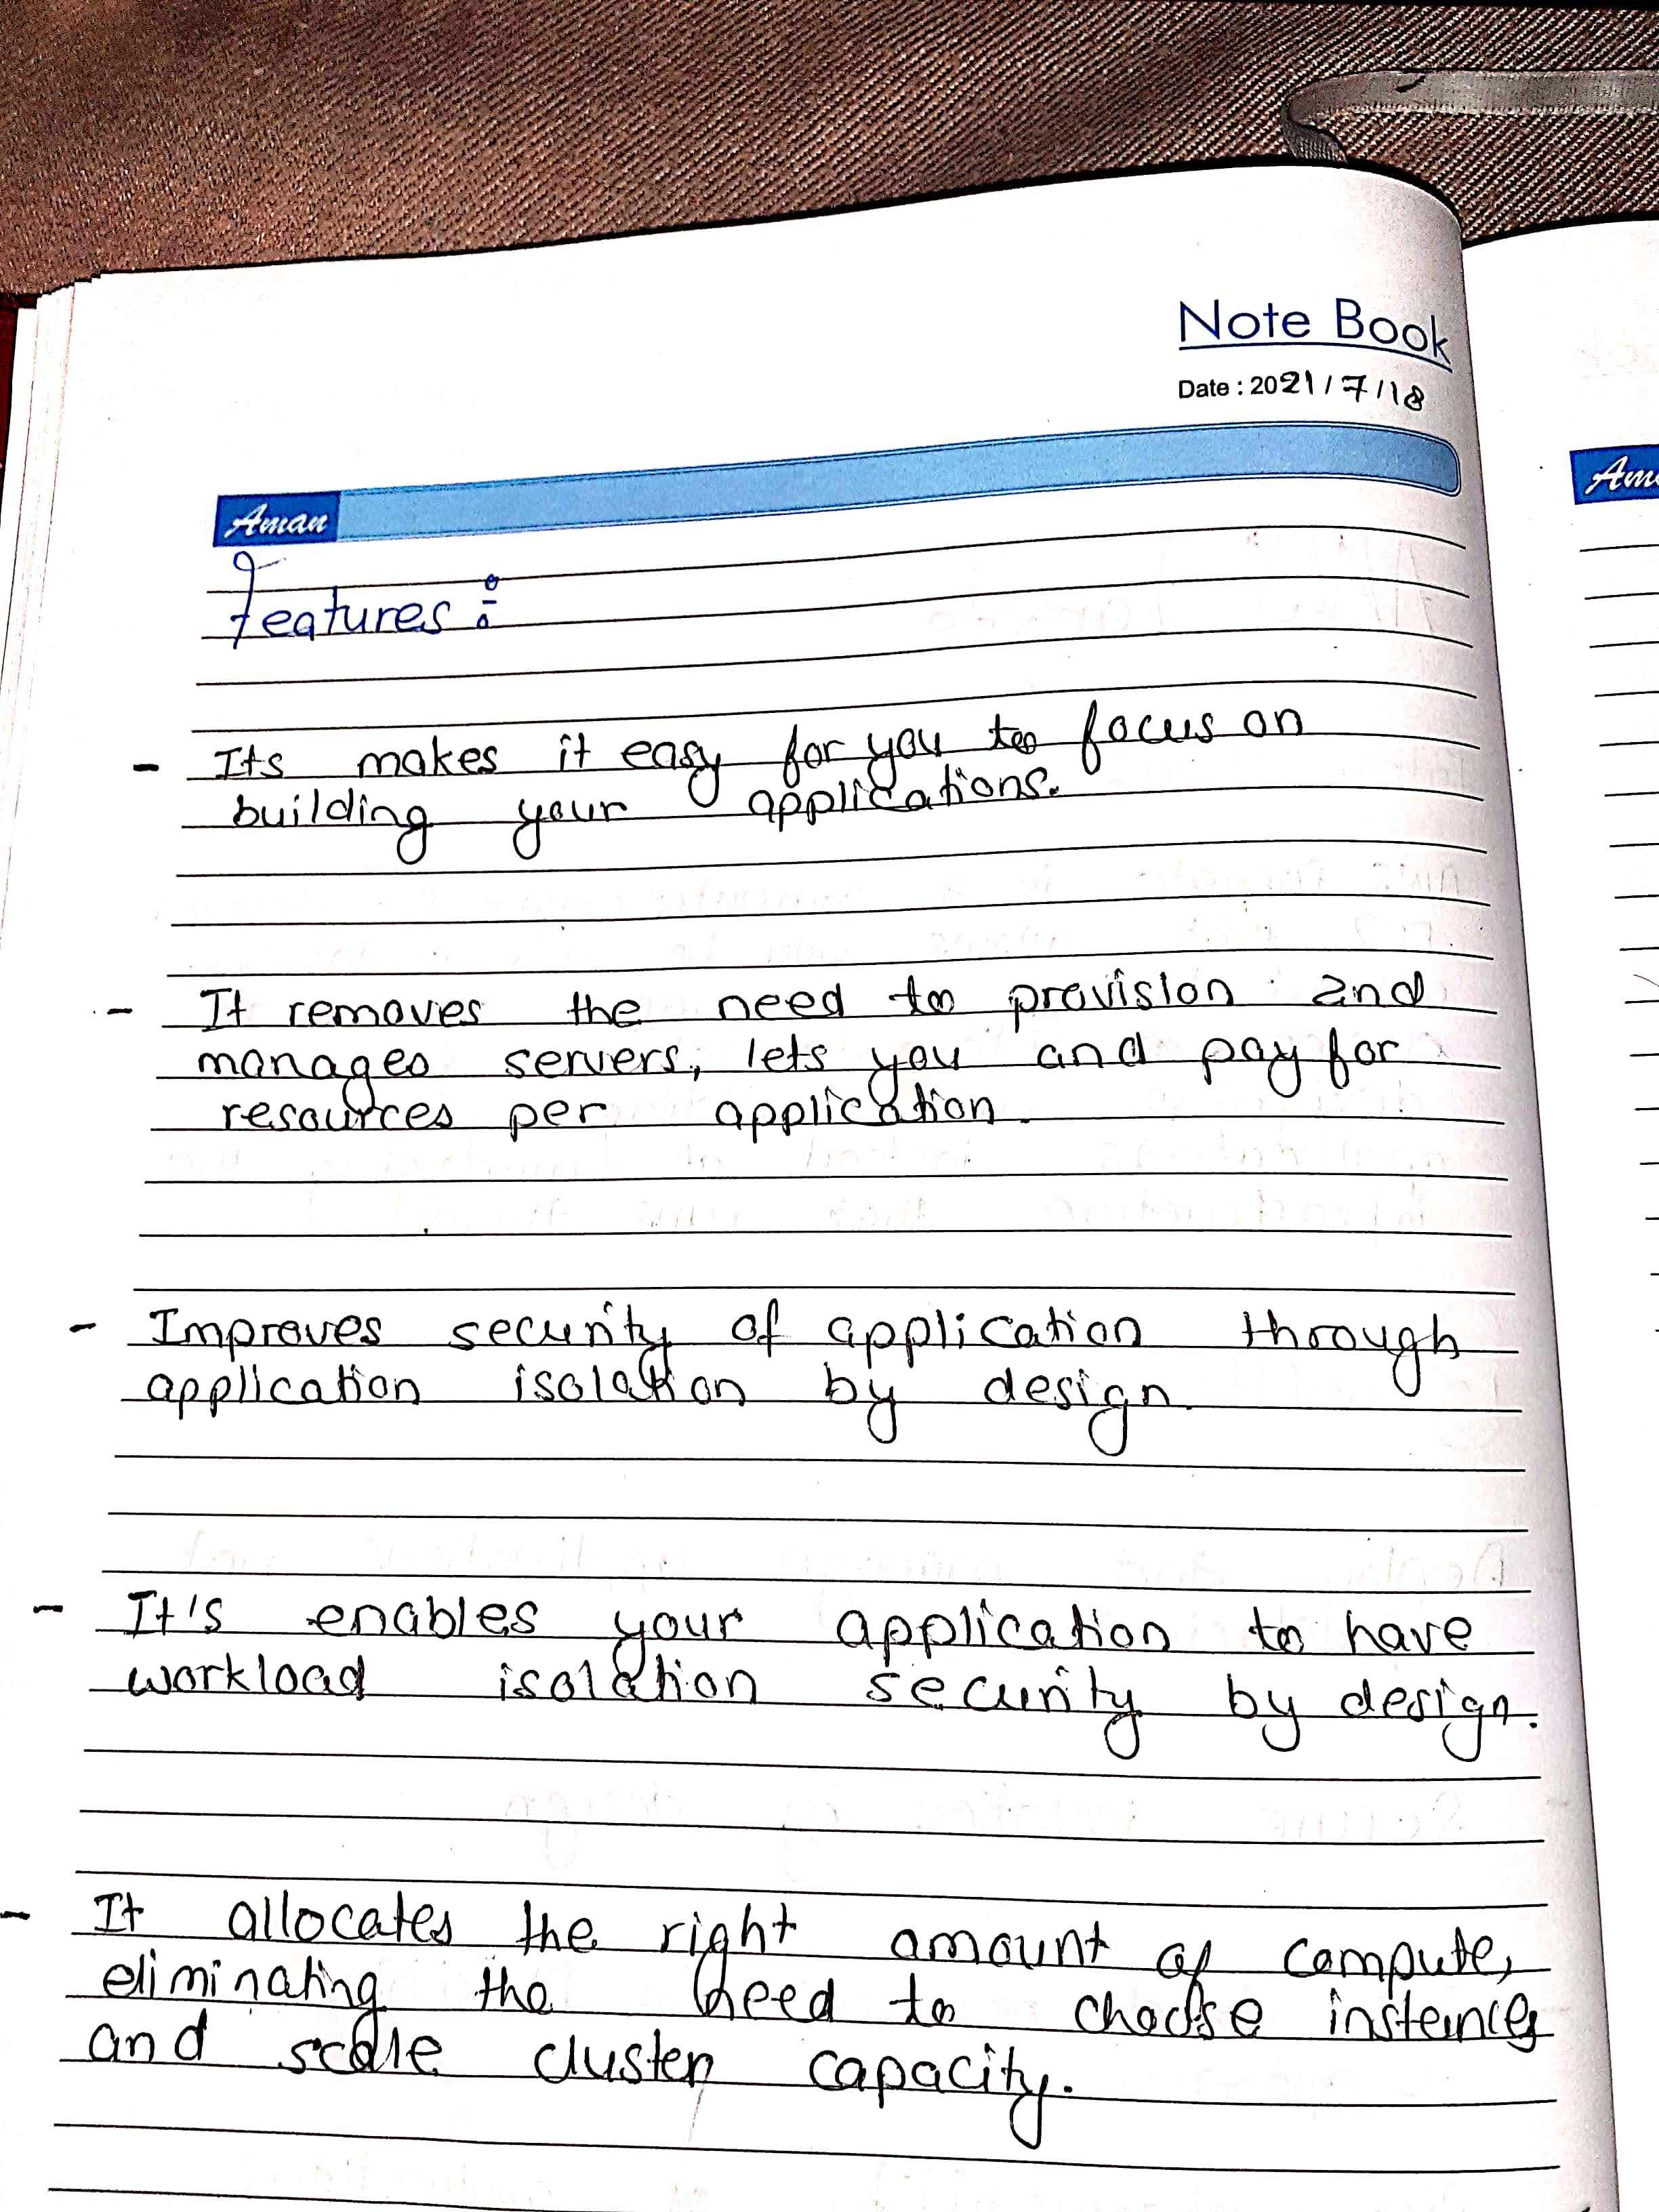 Note Book
Date : 2021/7/18
Aman
Features :-
- Its makes it easy for you to focus on
building your applications.
- It removes the need to provision and
manages servers, lets you and pay for
resources per application.
- Improves security of application through
application isolation by design.
- It's enables your application to have
workload isolation security by design.
- It allocates the right amount of compute,
eliminating the need to choose instances
and scale cluster capacity.